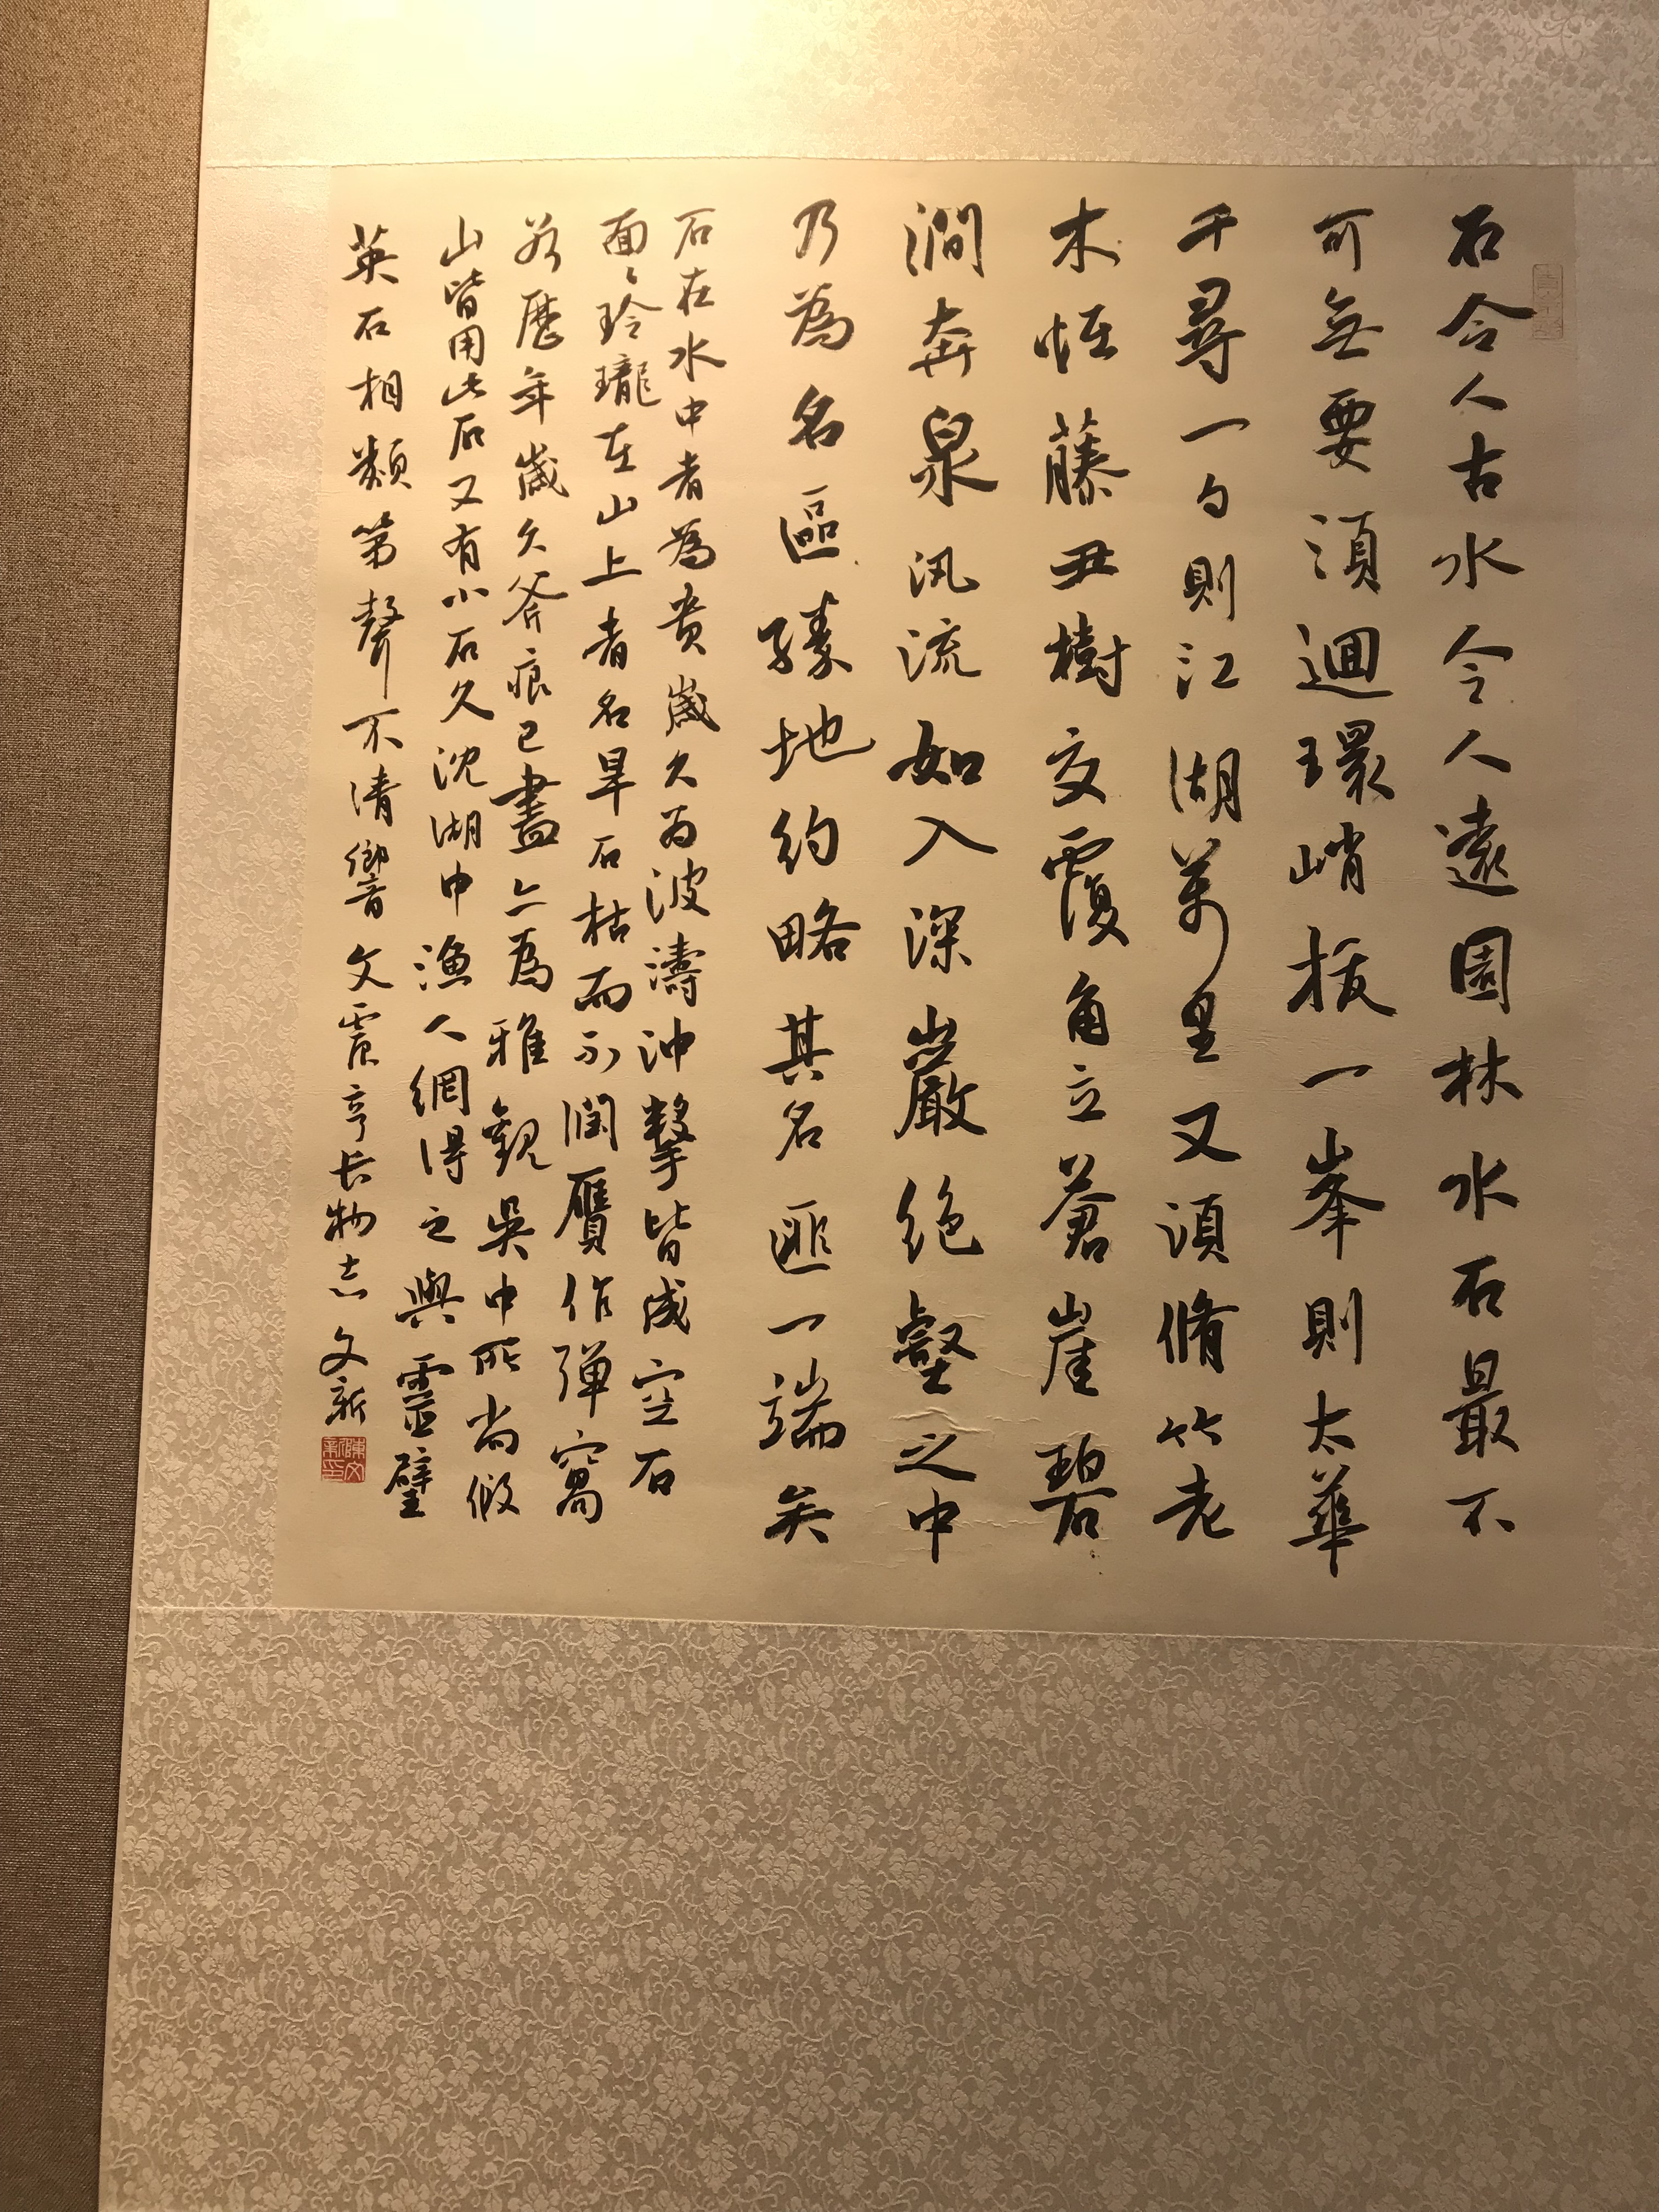 石令人古水令人遠園林水石最不
可無要須迴環峭拔一峯則太華
千尋一勺則江湖萬里又須脩竹老
木恠藤丑樹交覆角立蒼崖碧
澗奔泉汛流如入深巖絕壑之中
乃為名區勝地約略其名匪一端矣
石在水中者為貴歲久為波濤沖擊皆成空石
面〻玲瓏在山上者名旱石枯而不潤贋作彈窩
若歷年歲久斧痕已盡亦為雅觀吳中所尚假
山皆用此石又有小石久沈湖中漁人網得之與靈璧
英石相類第聲不清響 文震亨長物志 文新
陳文新印